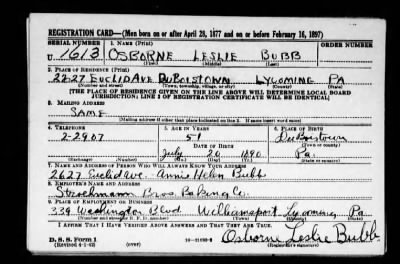 REGISTRATION CARD—(Men born on or after April 28, 1877 and on or before February 16, 1897)
SERIAL NUMBER 1. NAME (Print)
U 1613 OSBORNE LESLIE BUBB
(First) (Middle) (Last)
2. PLACE OF RESIDENCE (Print)
2227 EUCLID AVE DUBOISTOWN LYCOMING PA
(Number and street) (Town, township, village, or city) (County) (State)
[THE PLACE OF RESIDENCE GIVEN ON THE LINE ABOVE WILL DETERMINE LOCAL BOARD
JURISDICTION; LINE 2 OF REGISTRATION CERTIFICATE WILL BE IDENTICAL]
3. MAILING ADDRESS
SAME
[Mailing address if other than place indicated on line 2. If same insert word same]
4. TELEPHONE 5. AGE IN YEARS 6. PLACE OF BIRTH
2-2907 51 Duboistown
DATE OF BIRTH (Town or county)
July 20 1890 Pa.
(Exchange) (Number) (Mo.) (Day) (Yr.) (State or country)
7. NAME AND ADDRESS OF PERSON WHO WILL ALWAYS KNOW YOUR ADDRESS
2627 Euclid Ave. Annie Helen Bubb
8. EMPLOYER'S NAME AND ADDRESS
Stroehmann Bros. Baking Co.
9. PLACE OF EMPLOYMENT OR BUSINESS
339 Washington Blvd Williamsport Lycoming Pa
(Number and street or R. F. D. number) (Town) (County) (State)
I AFFIRM THAT I HAVE VERIFIED ABOVE ANSWERS AND THAT THEY ARE TRUE.
D. S. S. Form 1
(Revised 4-1-42) (over)
Osborne Leslie Bubb
(Registrant's signature)